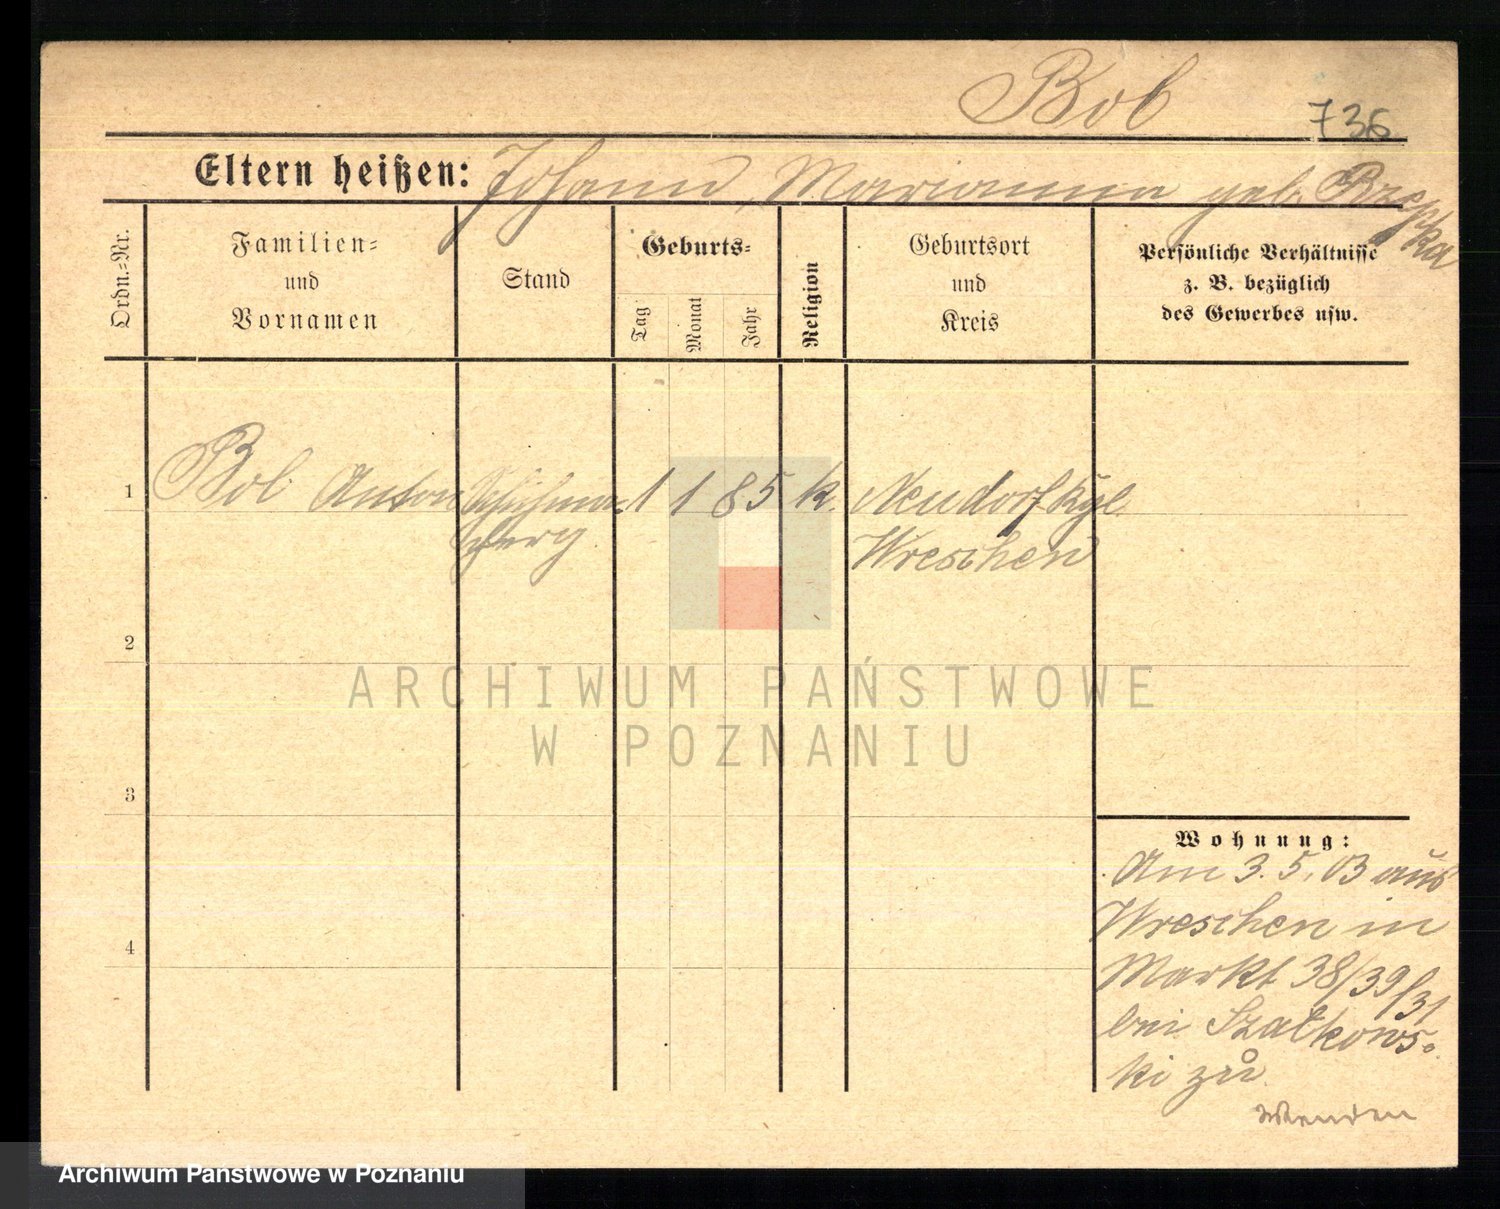 Bob
736
Eltern heißen: Johann, Marianna geb. Brzepka
Ordn.=Nr.
Familien=
und
Vornamen
Stand
Geburts=
Tag
Monat
Jahr
Religion
Geburtsort
und
Kreis
Persönliche Verhältnisse
z. B. bezüglich
des Gewerbes usw.
1
Bob Anton
1 1 85 k.
Neudorf Kgl.
Wreschen
2
3
4
Wohnung:
Am 3.5.03 aus
Wreschen in
Markt 38/39/31
bei Szatkows-
ki zu
Wenden
ARCHIWUM PAŃSTWOWE
W POZNANIU
Archiwum Państwowe w Poznaniu